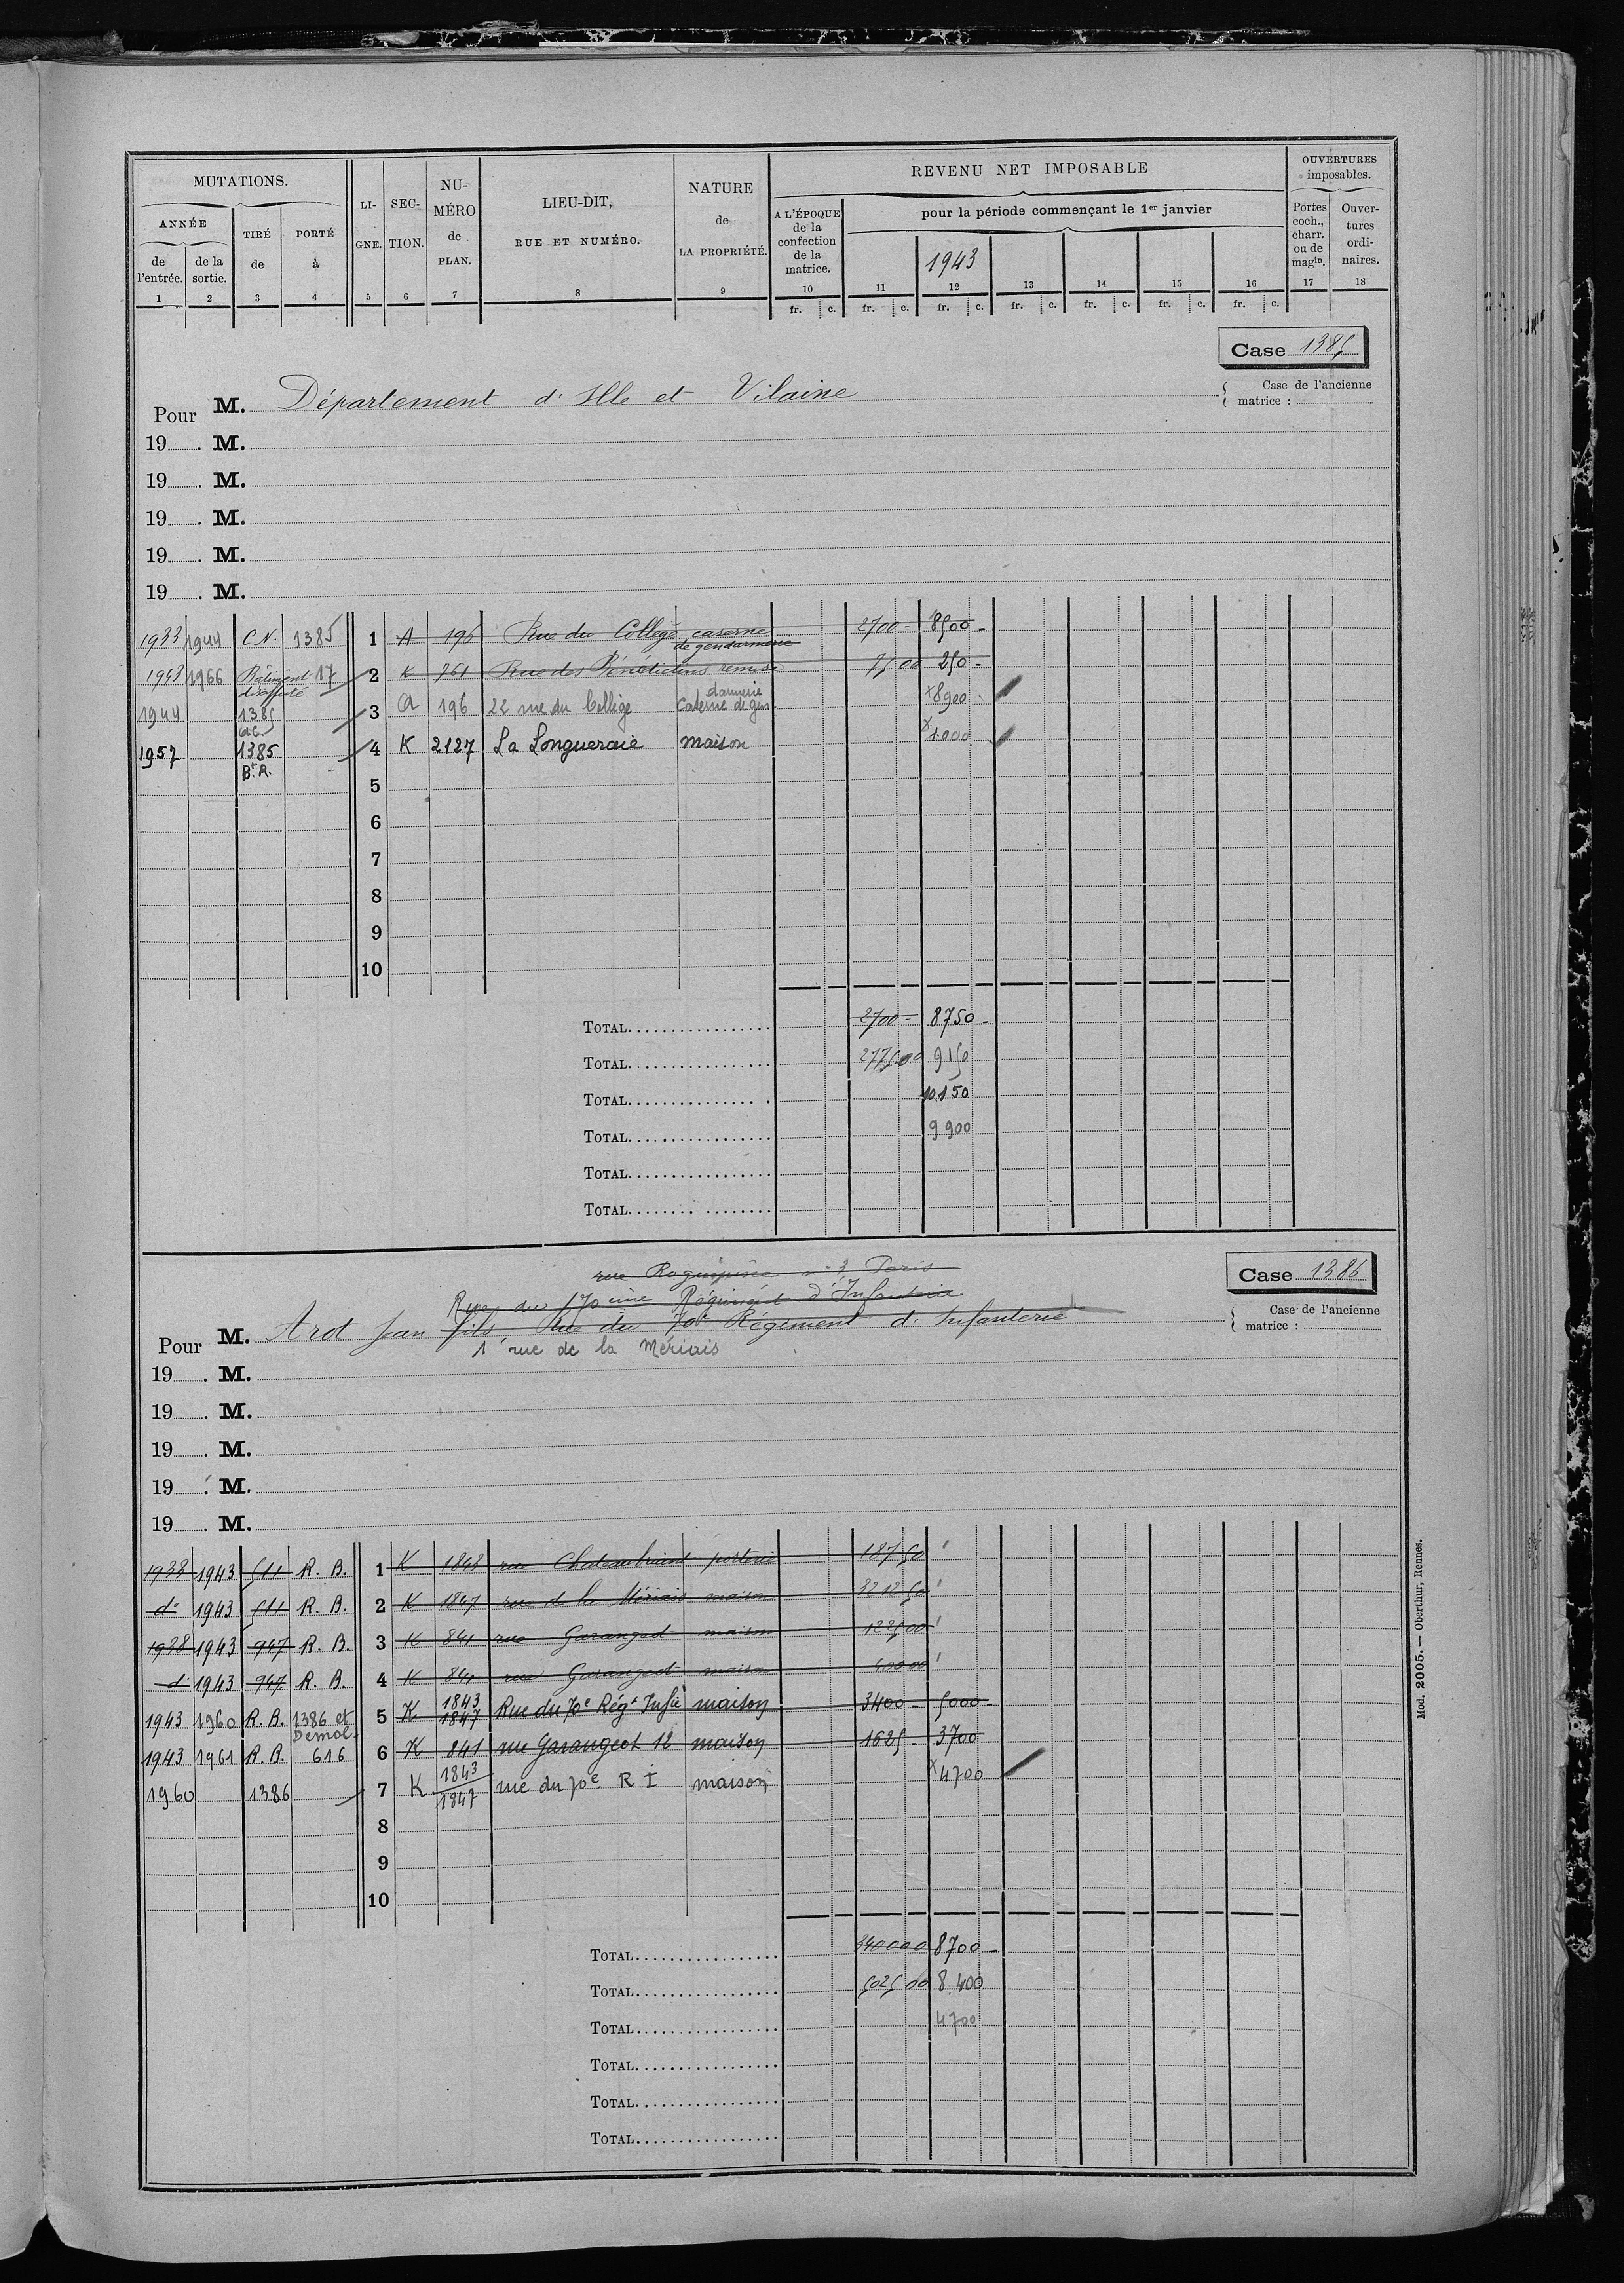 MUTATIONS. LI-GNE. SEC-TION. NU-MÉRO de PLAN. LIEU-DIT, RUE ET NUMÉRO. NATURE de LA PROPRIÉTÉ. REVENU NET IMPOSABLE OUVERTURES imposables.
ANNÉE TIRÉ de PORTÉ à A L'ÉPOQUE de la confection de la matrice. pour la période commençant le 1er janvier Portes coch., charr. ou de magin. Ouver-tures ordi-naires.
de l'entrée. de la sortie. 1943
1 2 3 4 5 6 7 8 9 10 11 12 13 14 15 16 17 18
fr. c. fr. c. fr. c. fr. c. fr. c. fr. c. fr. c.
Case 1385
Case de l'ancienne matrice :
Pour M. Département d'Ille et Vilaine
19 . M.
19 . M.
19 . M.
19 . M.
19 . M.
1933 1944 C.N. 1385 1 A 196 Rue du Collège caserne de gendarmerie 2700 - 8500 -
1943 1966 Bâtiment 17 2 K 761 Rue des Bénédictins remise 75 00 250 -
1944 1385 3 A 196 22 rue du Collège Caserne de gendarmerie x8900
1957 1385 Bt R. 4 K 2127 La Longueraie maison x1000
5
6
7
8
9
10
TOTAL 2700 - 8750 -
TOTAL 2775 00 9150
TOTAL 10.150
TOTAL 9900
TOTAL
TOTAL
Case 1386
Case de l'ancienne matrice :
Paris
Rue du 170ème Régiment d'Infanterie
Pour M. Arot Jean fils, Rue du 70e Régiment d'Infanterie
1 rue de la Mériais
19 . M.
19 . M.
19 . M.
19 . M.
19 . M.
1933 1943 511 R. B. 1 K 1843 rue Chateaubriand porterie 187 50
d° 1943 511 R. B. 2 K 1847 rue de la Mériais maison 3212 50
1938 1943 947 R. B. 3 K 841 rue Garangeot maison 1225 00
d° 1943 947 R. B. 4 K 841 rue Garangeot maison 400 00
1943 1960 R. B. 1386 et Démol. 5 K 1843 1847 Rue du 70e Régt Infie maison 3400 - 5000 -
1943 1961 R. B. 616 6 K 841 rue Garangeot 12 maison 1625 - 3700
1960 1386 7 K 1843 1847 rue du 70e R I maison x4700
8
9
10
TOTAL 3400 00 8700 -
TOTAL 5025 00 8.400
TOTAL 4700
TOTAL
TOTAL
TOTAL
Mod. 2005. — Oberthur, Rennes.